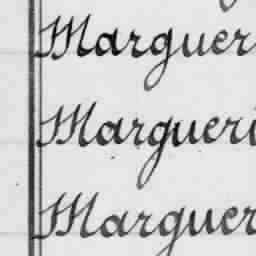 Marguer
Margueri
Marguer